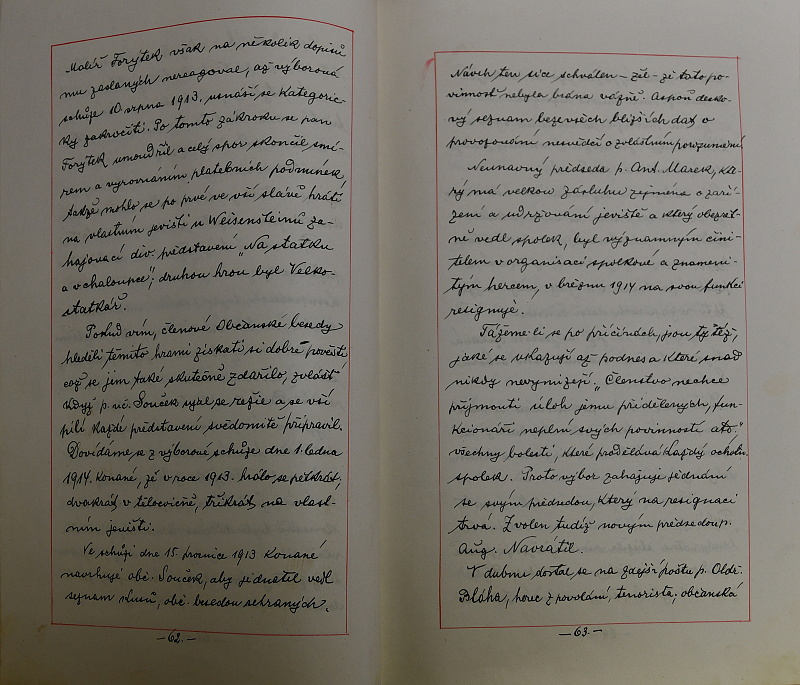 Malíř Forýtek však na několik dopisů
mu zaslaných nereagoval, až výborová
schůze 10. srpna 1913. usnáší se kategoric-
ky zakročiti. Po tomto zákroku se pan
Forýtek umoudřil a celý spor skončil smí-
rem a vyrovnáním platebních podmínek,
takže mohlo se po prvé ve vší slávě hráti
na vlastním jevišti u Weisensteinů za-
hajovací div. představení „Na statku
a v chaloupce"; druhou hrou byl Velko-
statkář.
Pokud vím, členové Občanské besedy
hleděli těmito hrami získati si dobré pověsti
což se jim také skutečně zdařilo, zvlášť
když p. uč. Souček ujal se režie a se vší
pílí každé představení svědomitě připravil.
Dovídáme se z výborové schůze dne 1. ledna
1914. konané, že v roce 1913. hrálo se pětkrát;
dvakrát v tělocvičně, třikrát na vlast-
ním jevišti.
Ve schůzi dne 15. prosince 1913 konané
navrhuje obč. Souček, aby jednatel vedl
seznam kusů, obč. besedou sehraných.
—62.—
Návrh ten sice schválen – žel – že tato po-
vinnost nebyla brána vážně. Aspoň desko-
vý seznam beze všech bližších dat o
provozování nesvědčí o zvláštním porozumění.
Neúnavný předseda p. Ant. Marek, kte-
rý má velkou zásluhu zejména o zaří-
zení a udržování jeviště a který obezřet-
ně vedl spolek, byl významným čini-
telem v organisaci spolkové a znameni-
tým hercem, v březnu 1914 na svou funkci
resignuje.
Tážeme-li se po příčinách, jsou ty též,
jaké se ukazují až podnes a které snad
nikdy nevymizejí. „Členstvo nechce
přijmouti úloh jemu přidělených, fun-
kcionáři neplní svých povinností atd."
všechny bolesti, které prodělává každý ochotn.
spolek. Proto výbor zahajuje jednání
se svým předsedou, který na resignaci
trvá. Zvolen tudíž novým předsedou p.
Aug. Navrátil.
V dubnu dostal se na zdejší poštu p. Oldř.
Bláha, horec z povolání, tenorista; občanská
—63.—